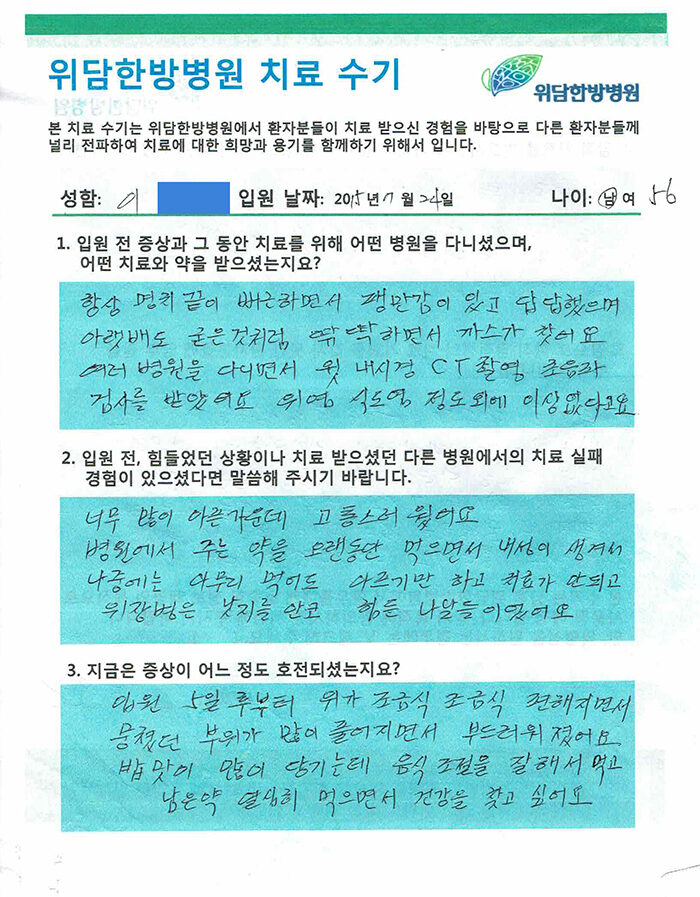 위담한방병원 치료 수기
위담한방병원
본 치료 수기는 위담한방병원에서 환자분들이 치료 받으신 경험을 바탕으로 다른 환자분들께
널리 전파하여 치료에 대한 희망과 용기를 함께하기 위해서 입니다.
성함: 이 입원 날짜: 2015년 7월 24일 나이: 남 여 56
1. 입원 전 증상과 그 동안 치료를 위해 어떤 병원을 다니셨으며,
어떤 치료와 약을 받으셨는지요?
항상 명치 끝이 뻐근하면서 팽만감이 있고 답답했으며
아랫배도 굳은것처럼 딱딱하면서 까스가 찾어요
여러 병원을 다니면서 윗 내시경 CT 촬영 초음파
검사를 받았어요 위염 식도염 정도외에 이상없다고요
2. 입원 전, 힘들었던 상황이나 치료 받으셨던 다른 병원에서의 치료 실패
경험이 있으셨다면 말씀해 주시기 바랍니다.
너무 많이 아픈가운데 고통스러 웠어요
병원에서 주는 약을 오랜동안 먹으면서 내성이 생겨서
나중에는 아무리 먹어도 아프기만 하고 치료가 안되고
위장병은 낫지를 안코 힘든 나날들이였어요
3. 지금은 증상이 어느 정도 호전되셨는지요?
입원 5일 후부터 위가 조금식 조금식 편해지면서
뭉쳤던 부위가 많이 풀어지면서 부드러워 졌어요
밥맛이 많이 당기는데 음식 조절을 잘해서 먹고
남은약 열심히 먹으면서 건강을 찾고 싶어요